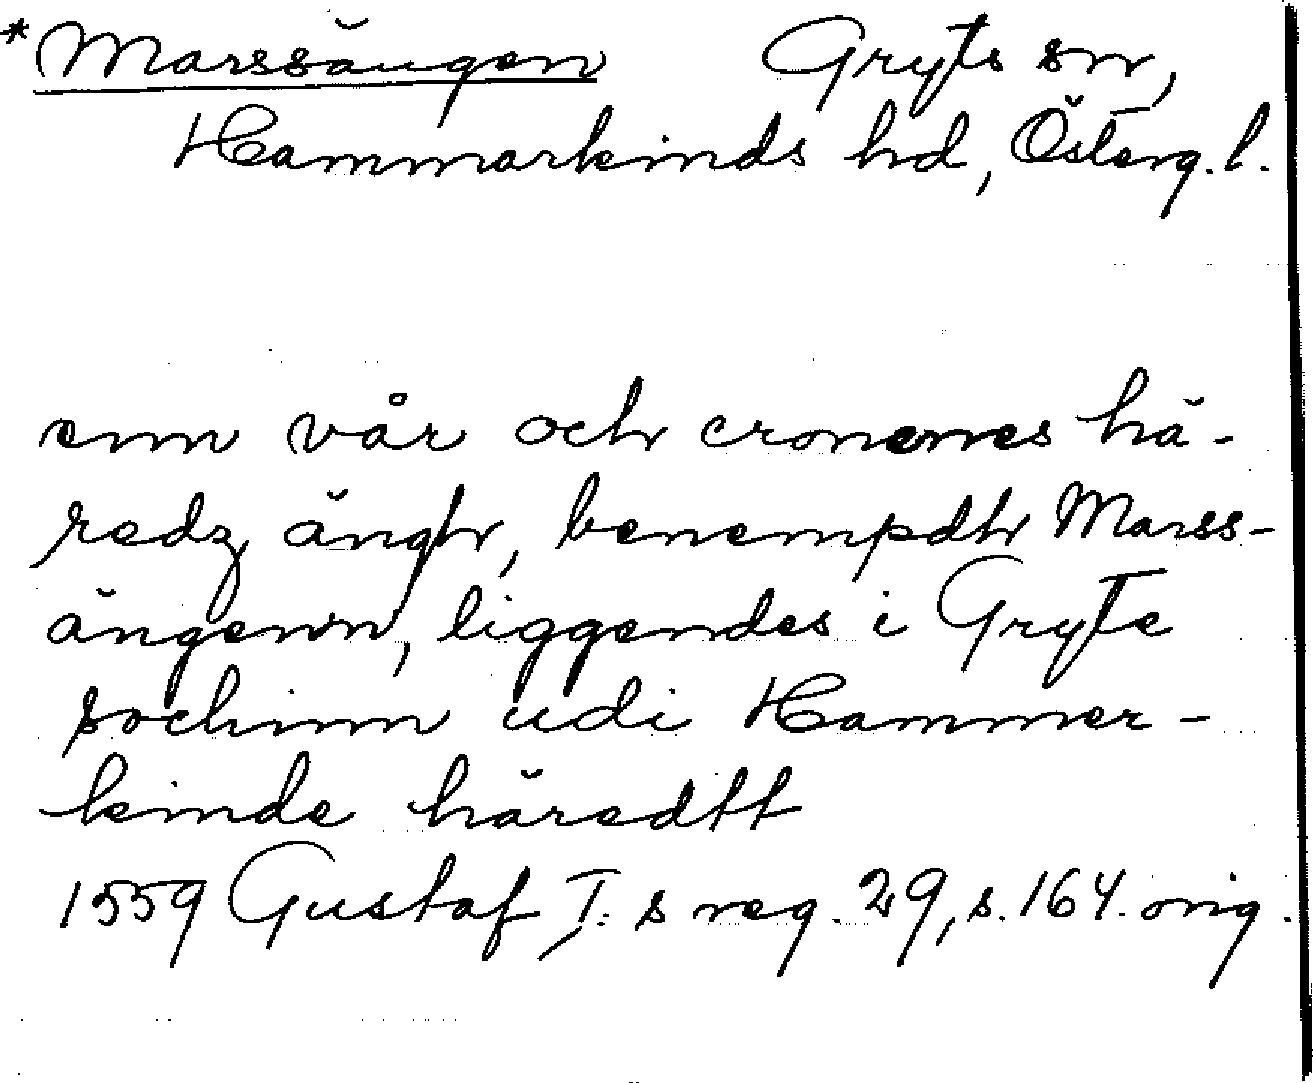 *Marssängen Gryts sn,
Hammarkinds hd, Österg. l.
enn vår och cronenes hä-
redz ängh, benempdh Marss-
ängenn, liggendes i Gryte
sochinn udi Hammer-
kinde häredtt
1559 Gustaf I:s reg. 29, s. 164. orig.